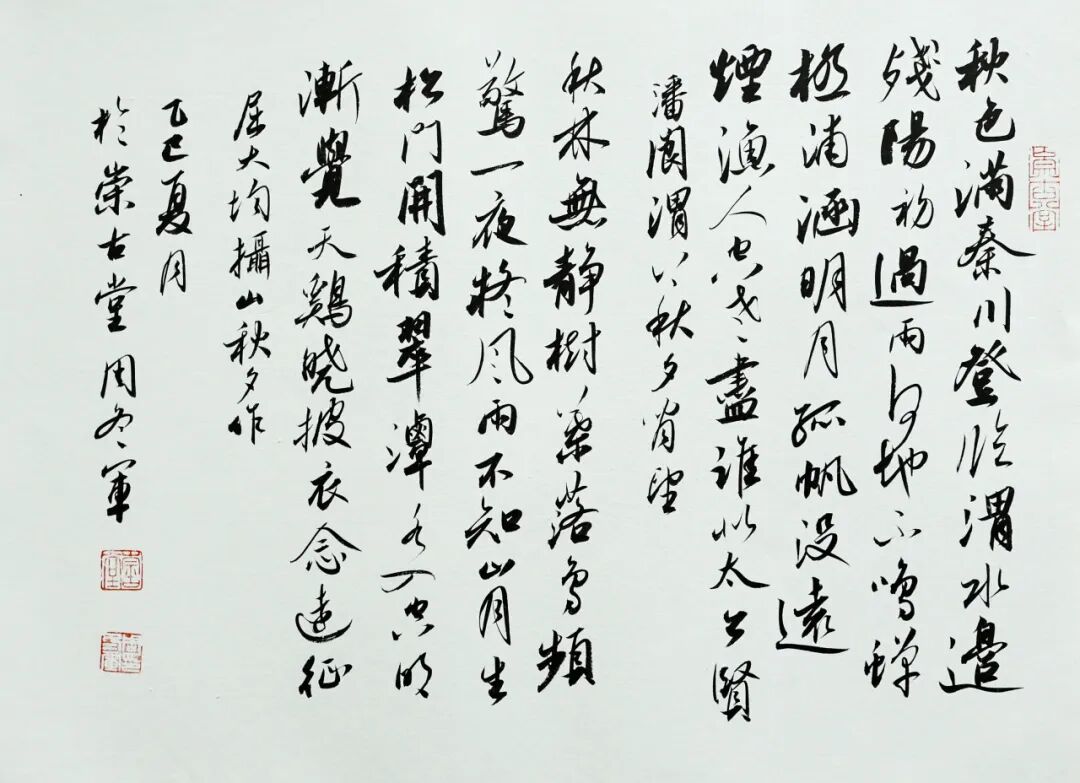 秋色滿秦川登臨渭水邊
殘陽初過雨何地不鳴蟬
極浦涵明月孤帆沒遠
煙漁人空老盡誰似太公賢
潘閬渭上秋夕閑望
秋林無靜樹葉落鳥頻
驚一夜疑風雨不知山月生
松門開積翠潭水入空明
漸覺天鷄曉披衣念遠征
屈大均攝山秋夕作
乙巳夏月
於崇古堂周冬軍